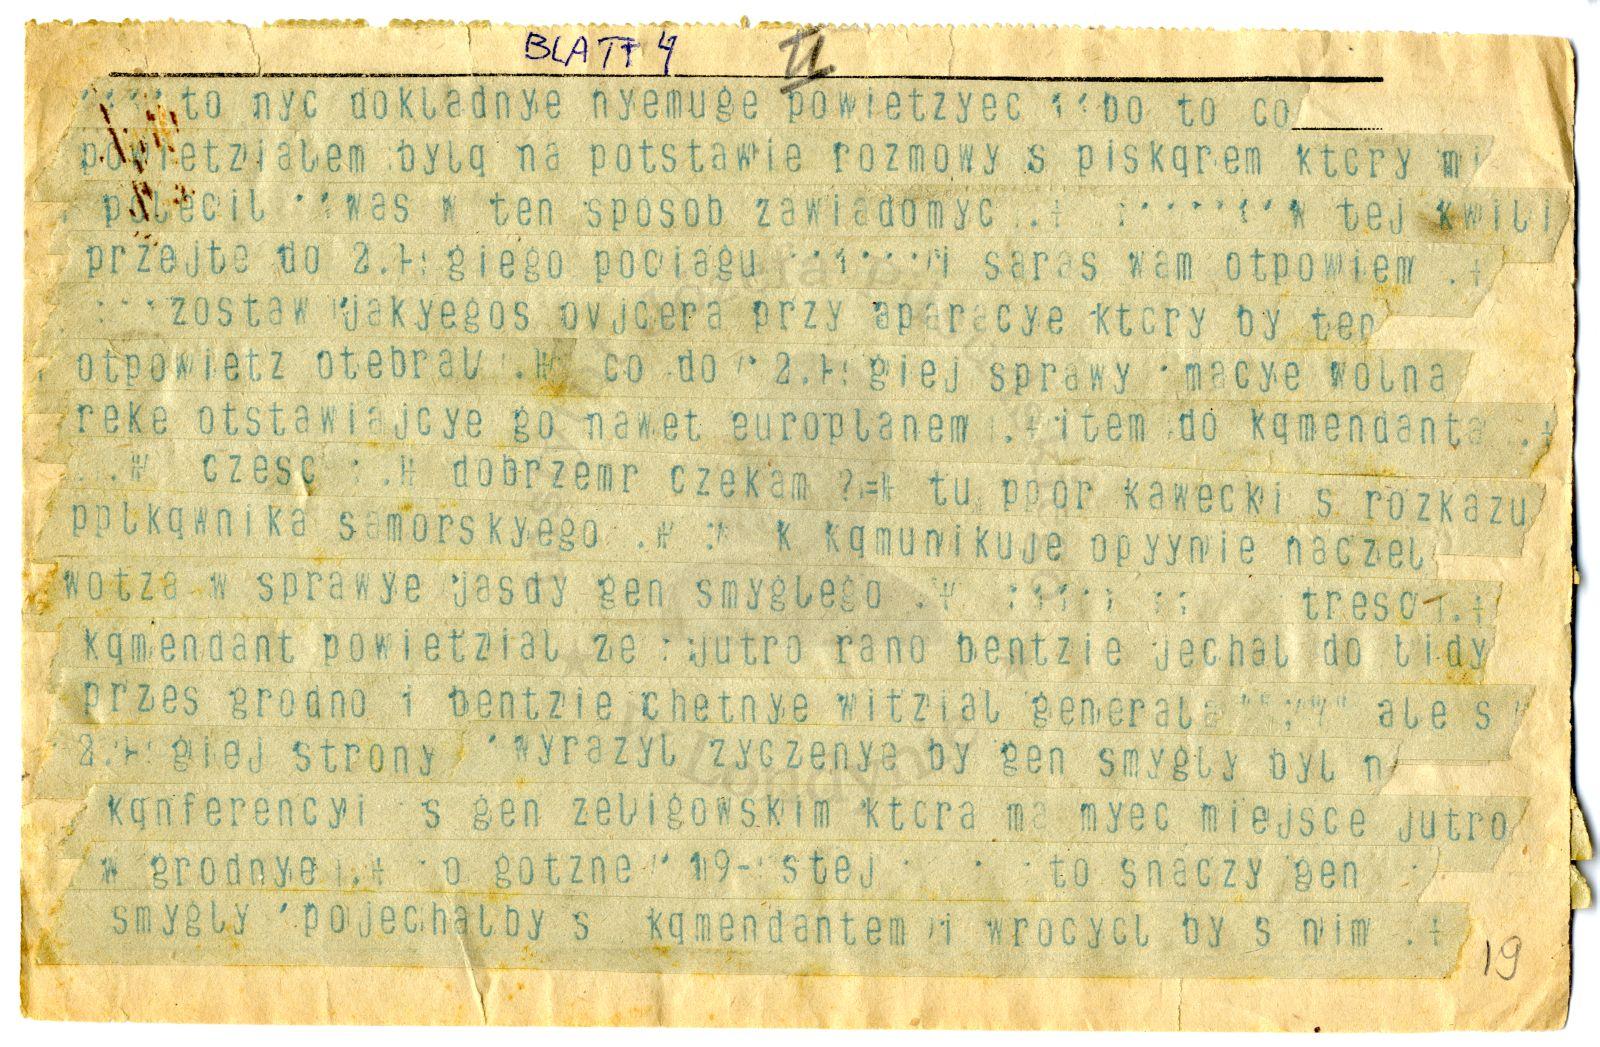 BLATT 4 II
to nyc dokladnye nyemuge powietzyec bo to co
powietzialem bylq na potstawie rozmowy s piskqrem ktcry mi
polecil was w ten sposob zawiadomyc .+ w tej kwili
przejte do 2.+: giego pociagu i saras wam otpowiem .+
zostaw jakyegos ovjcera przy aparacye ktcry by ten
otpowietz otebral .+ co do 2.+: giej sprawy macye wolna
reke otstawiajcye go nawet europlanem .+ item do kqmendanta .+
.+ czesc : .+ dobrzemr czekam ?=+ tu ppor kawecki s rozkazu
pplkqwnika samorskyego .+ k kqmunikuje opyynie naczel
wotza w sprawye jasdy gen smyglego .+ tresc .+
kqmendant powietzial ze jutro rano bentzie jechal do lidy
przes grodno i bentzie chetnye witzial generala ale s
2.+: giej strony wyrazyl zyczenye by gen smygly byl n
kqnferencyi s gen zeligowskim ktcra ma myec miejsce jutro
w grodnye .+ o gotzne 19- stej to snaczy gen
smygly pojechalby s kqmendantem i wrocycl by s nim .+
19